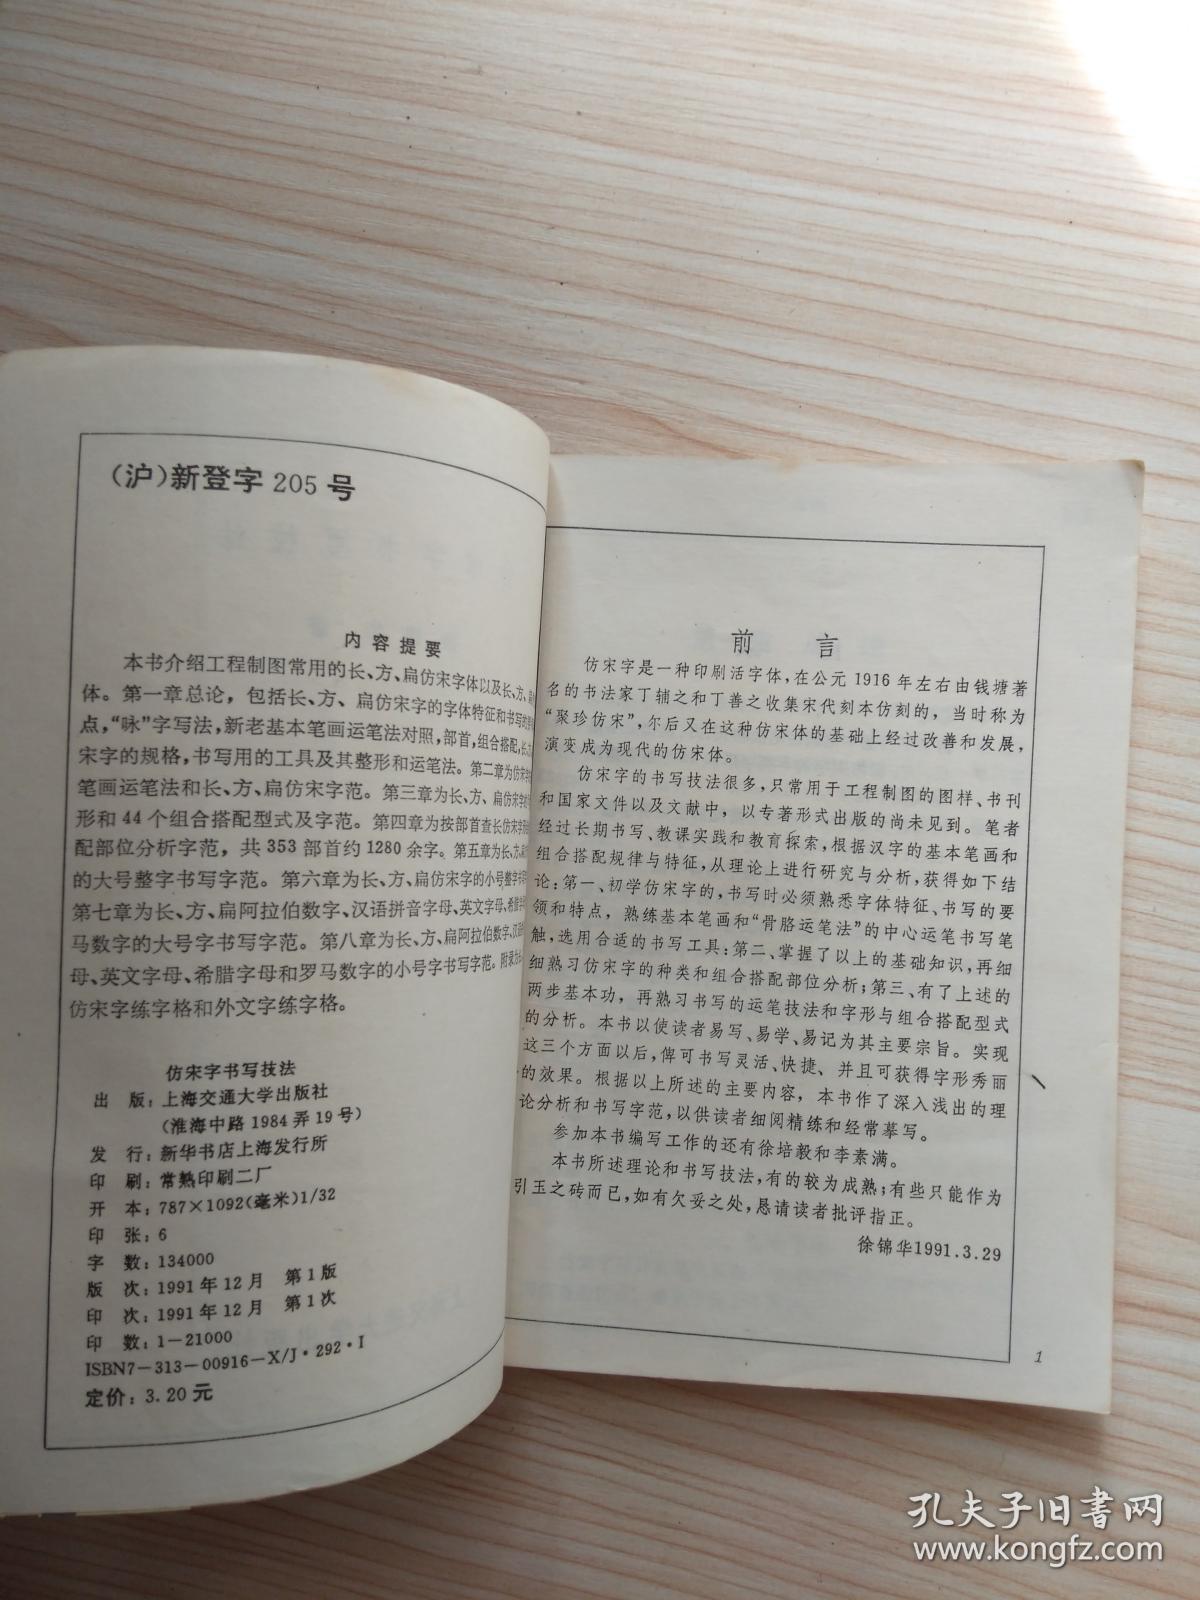 （沪）新登字 205 号
内容提要
本书介绍工程制图常用的长、方、扁仿宋字体以及长、方、
体。第一章总论，包括长、方、扁仿宋字的字体特征和书写的
点，“咏”字写法，新老基本笔画运笔法对照，部首，组合搭配，长、
宋字的规格，书写用的工具及其整形和运笔法。第二章为仿宋字
笔画运笔法和长、方、扁仿宋字范。第三章为长、方、扁仿宋字的
形和 44 个组合搭配型式及字范。第四章为按部首查长仿宋字
配部位分析字范，共 353 部首约 1280 余字。第五章为长、方、
的大号整字书写字范。第六章为长、方、扁仿宋字的小号整字
第七章为长、方、扁阿拉伯数字、汉语拼音字母、英文字母、希腊字
马数字的大号字书写字范。第八章为长、方、扁阿拉伯数字、汉语
母、英文字母、希腊字母和罗马数字的小号字书写字范。附录
仿宋字练字格和外文字练字格。
仿宋字书写技法
出 版：上海交通大学出版社
（淮海中路 1984 弄 19 号）
发 行：新华书店上海发行所
印 刷：常熟印刷二厂
开 本：787×1092（毫米）1/32
印 张：6
字 数：134000
版 次：1991 年 12 月 第 1 版
印 次：1991 年 12 月 第 1 次
印 数：1－21000
ISBN7－313－00916－X/J·292·I
定价：3.20 元
前 言
仿宋字是一种印刷活字体，在公元 1916 年左右由钱塘著
名的书法家丁辅之和丁善之收集宋代刻本仿刻的，当时称为
“聚珍仿宋”，尔后又在这种仿宋体的基础上经过改善和发展，
演变成为现代的仿宋体。
仿宋字的书写技法很多，只常用于工程制图的图样、书刊
和国家文件以及文献中，以专著形式出版的尚未见到。笔者
经过长期书写、教课实践和教育探索，根据汉字的基本笔画和
组合搭配规律与特征，从理论上进行研究与分析，获得如下结
论：第一、初学仿宋字的，书写时必须熟悉字体特征、书写的要
领和特点，熟练基本笔画和“骨骼运笔法”的中心运笔书写笔
触，选用合适的书写工具：第二、掌握了以上的基础知识，再细
细熟习仿宋字的种类和组合搭配部位分析；第三、有了上述的
两步基本功，再熟习书写的运笔技法和字形与组合搭配型式
的分析。本书以使读者易写、易学、易记为其主要宗旨。实现
这三个方面以后，俾可书写灵活、快捷、并且可获得字形秀丽
的效果。根据以上所述的主要内容，本书作了深入浅出的理
论分析和书写字范，以供读者细阅精练和经常摹写。
参加本书编写工作的还有徐培毅和李素满。
本书所述理论和书写技法，有的较为成熟；有些只能作为
引玉之砖而已，如有欠妥之处，恳请读者批评指正。
徐锦华1991.3.29
1
孔夫子旧书网
www.kongfz.com